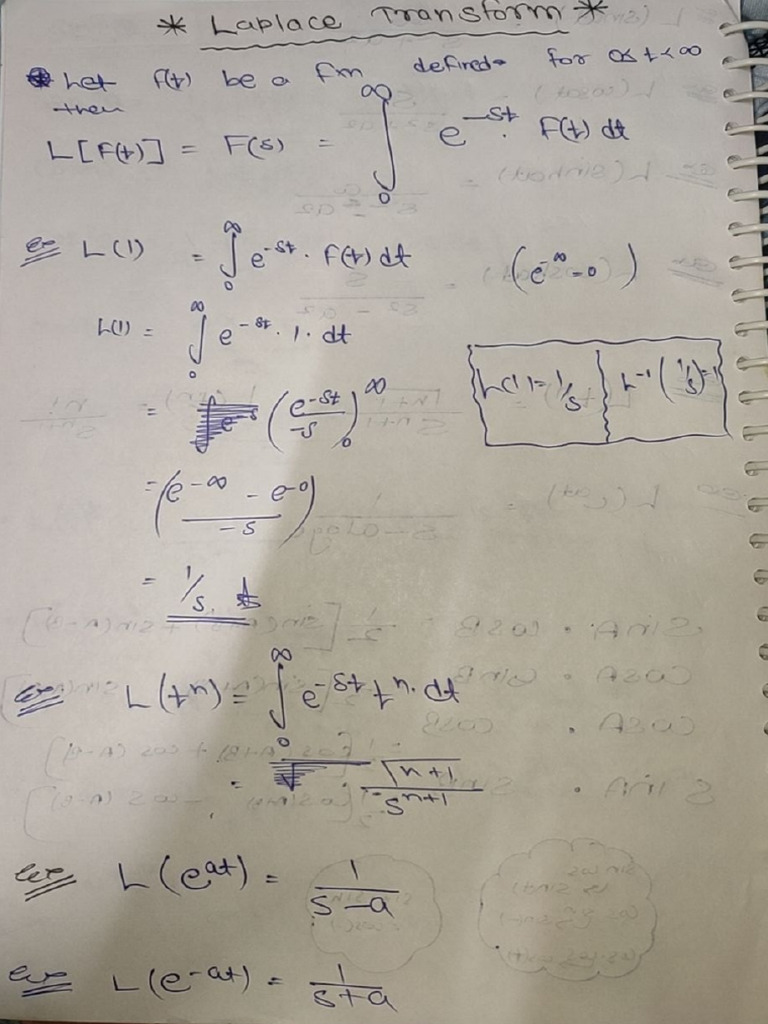 * Laplace Transform *
Let f(t) be a fxn defined for 0<t<∞
then
L[F(t)] = F(s) = ∫₀^∞ e^-st . F(t) dt
ex L(1) = ∫₀^∞ e^-st . F(t) dt (e^-∞ = 0)
L(1) = ∫₀^∞ e^-st . 1 . dt
L(1) = 1/s | L^-1 (1/s) = 1
= (e^-st / -s)₀^∞
= (e^-∞ - e^-0 / -s)
= 1/s.
ex L(t^n) = ∫₀^∞ e^-st t^n . dt
= √n+1 / s^n+1
ex L(e^at) = 1 / s-a
ex L(e^-at) = 1 / s+a